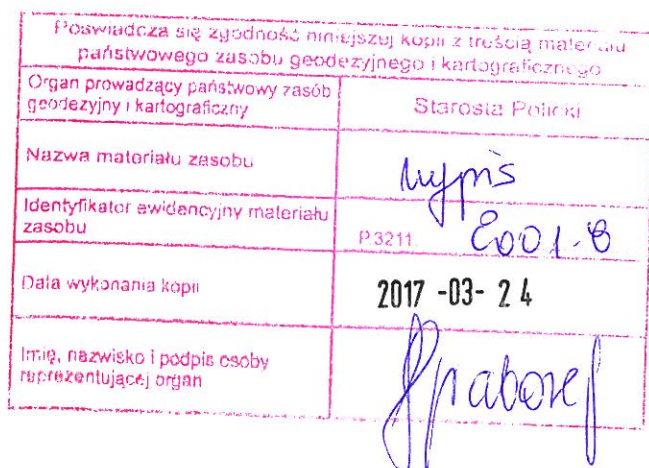 Poświadcza się zgodność niniejszej kopii z treścią materiału
państwowego zasobu geodezyjnego i kartograficznego
Organ prowadzący państwowy zasób
geodezyjny i kartograficzny
Starosta Policki
Nazwa materiału zasobu
wypis
Identyfikator ewidencyjny materiału
zasobu
P.3211.
2001-8
Data wykonania kopii
2017 -03- 24
Imię, nazwisko i podpis osoby
reprezentującej organ